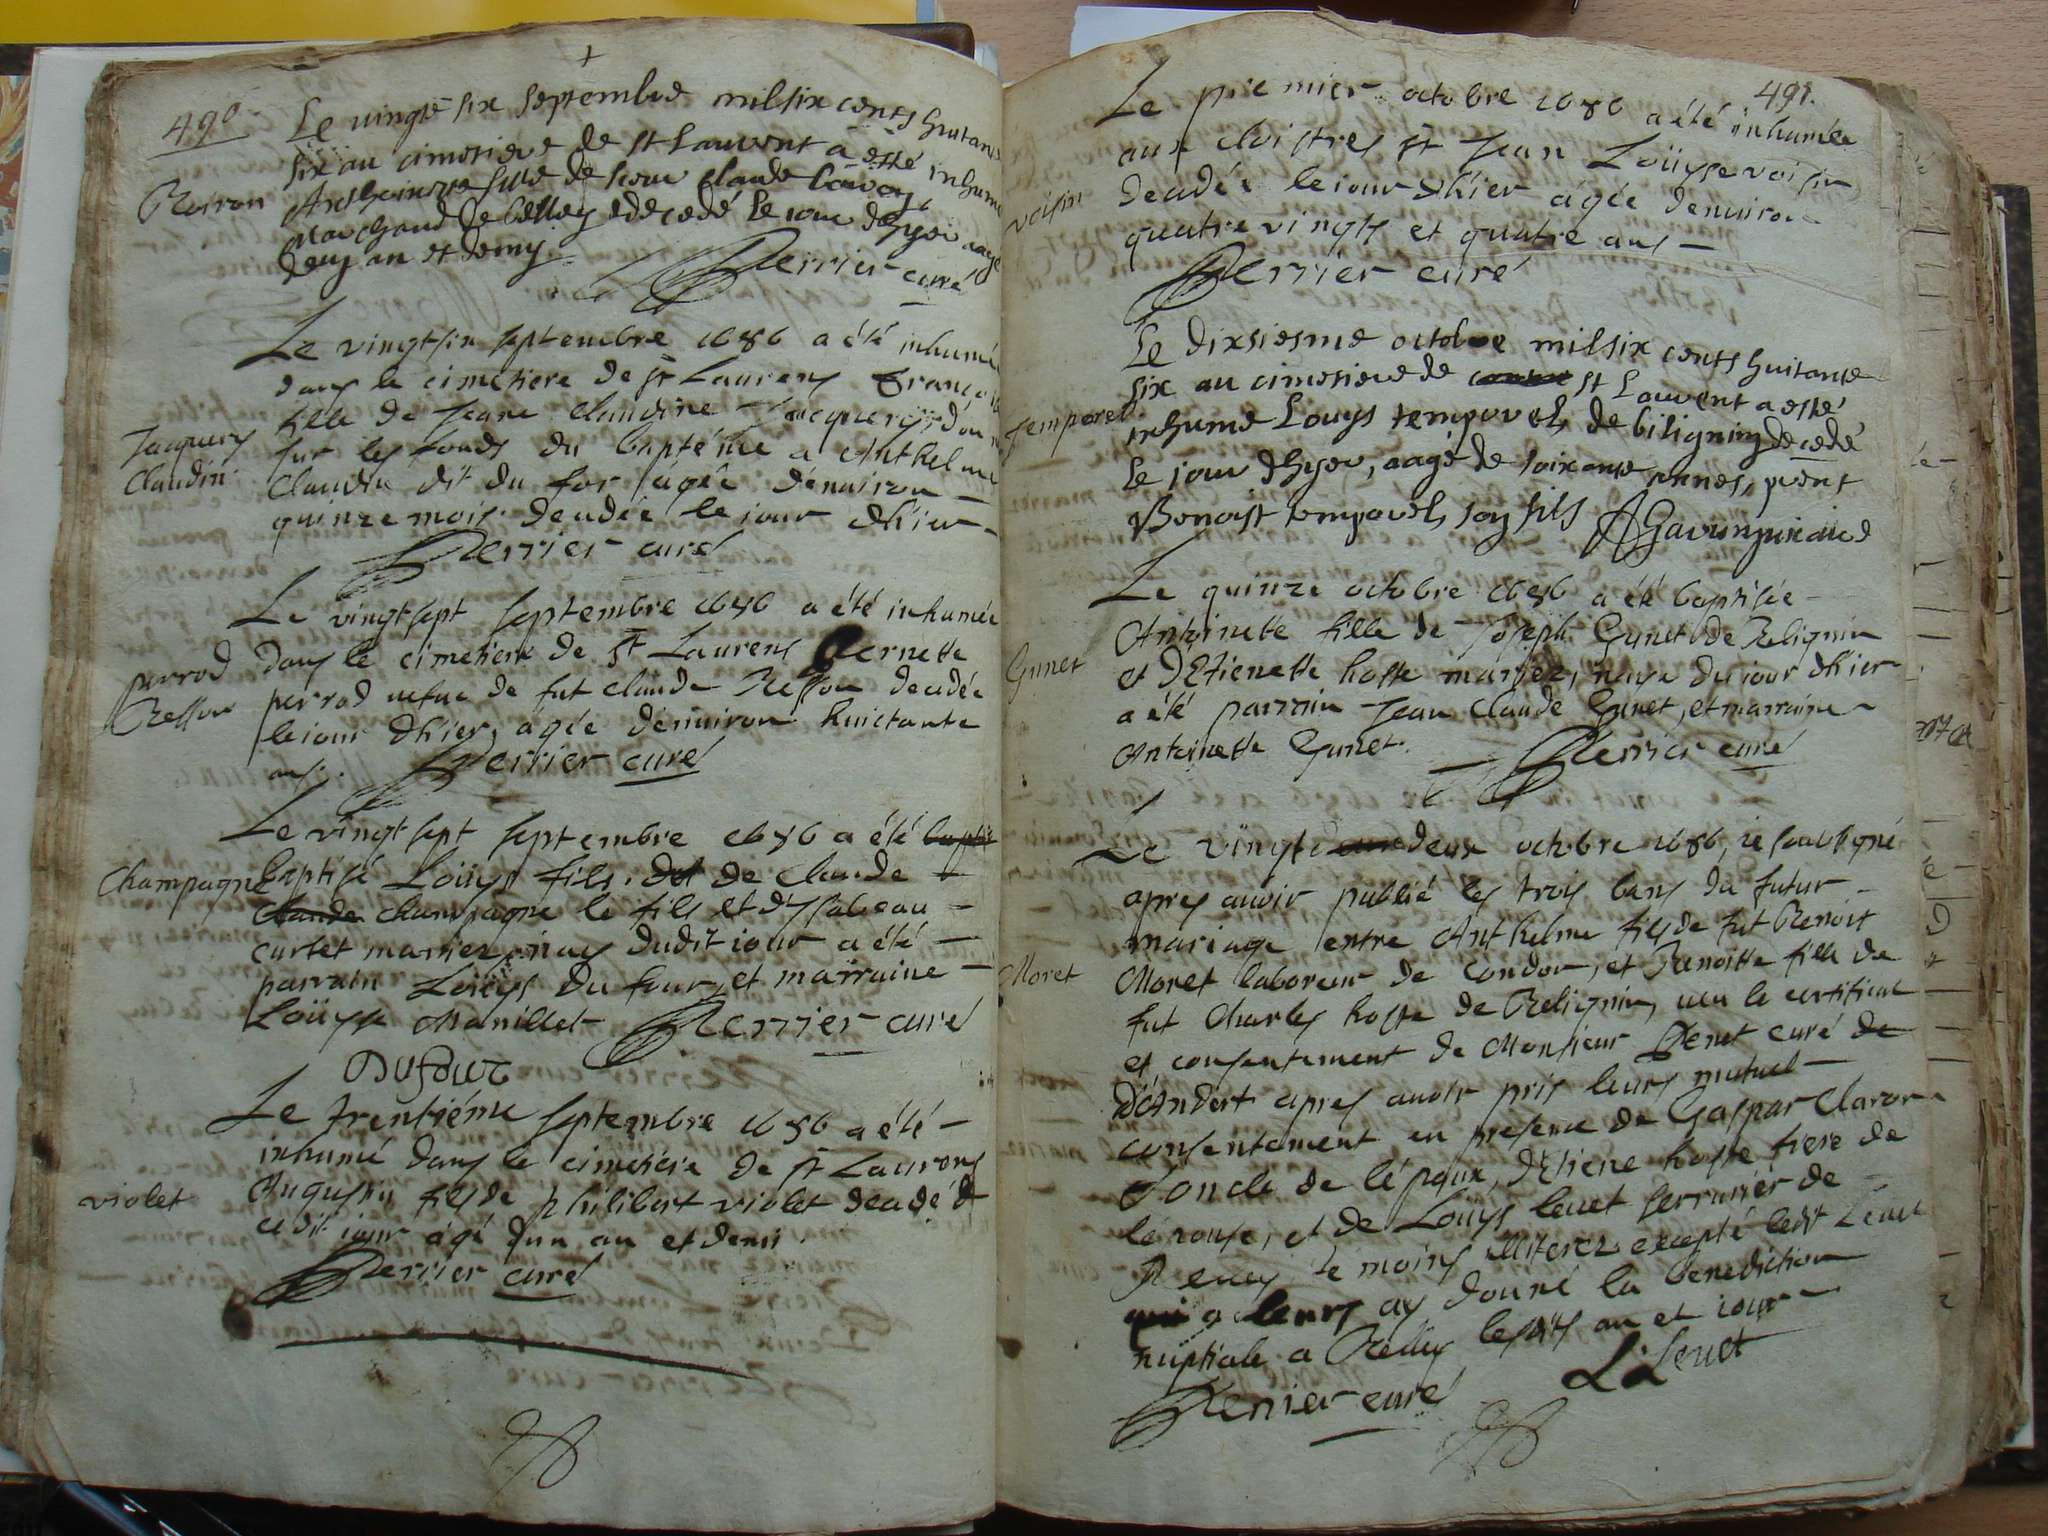 490
Le vingte six septembre mil six cents huitante
six au cimetiere de st Laurent a esté inhumé
Anthoinette fille de sieur Claude
Marchand de belley decedé le jour dhyer aagé
dung an et demy
Perrier curé
Le vingtsix septembre 1686 a été inhumé
dans le cimetiere de st Laurens Françoise
fille de Jeane Claudine Jacquery
sur les fonds du baptéme a Anthelme
Claudin dit du for agée denuiron
quinze mois decedée le iour dhier
Jacquery
Claudin
Perrier curé
Le vingtsept septembre 1686 a été inhumée
dans le cimetiere de st Laurens Pernette
perrod uefue de fut Claude Resson decedée
le iour dhier, agée denuiron huictante
ans.
perrod
Perrier curé
Le vingtsept septembre 1686 a été
baptisé Loüys fils de Claude
champagne le fils et dysabeau
curtet mariez, nay dudit iour a été
parrain Loüys Du four, et marraine
Loüyse Manillet
Champagne
Perrier curé
Dufour
Le trentiéme septembre 1686 a été
inhumé dans le cimetiere de st Laurens
Augustin fils de philibert violet decedé
cedit iour agé dun an et demi.
violet
Perrier curé
491.
Le premier octobre 1686 a été inhumée
aux cloistres st Jean Loüyse voisin
decedée le iour dhier agée denuiron
quatre vingts et quatre ans
voisin
Perrier curé
Le dixsiesme octobre mil six cents huitante
six au cimetiere de st Laurent a esté
inhumé Louys temporel de biligning decedé
le jour dhyer, aagé de soixante annes, pnt
Benoist temporel son fils
temporel
Le quinze octobre 1686 a été baptisée
Antoinette fille de Joseph Gunet de Belignin
et d'Etienette hoste mariez, naye du jour dhier
a été parrain Jean Claude Gunet, et marraine
Antoinette Gunet.
Gunet
Perrier curé
Le vingt deux octobre 1686, ie soubsigné
apres auoir publié les trois bans du futur
mariage entre Anthelme fils de fut Benoit
Moret laboreur de Condon, et Benoitte fille de
fut Charles hoste de Belignin, ueu le certificat
et consentement de Monsieur curé de
d'Andert apres auoir pris leurs mutuel
consentement en presence de Gaspar Claron
oncle de lépoux, d'Etiene hoste frere de
lépouse, et de Loüys leuet serrurier de
Belley témoins illiterez excepté ledit Leuet
leurs ay donné la benediction
nuptiale a Belley lesdits an et iour
Moret
L Leuet
Perrier curé